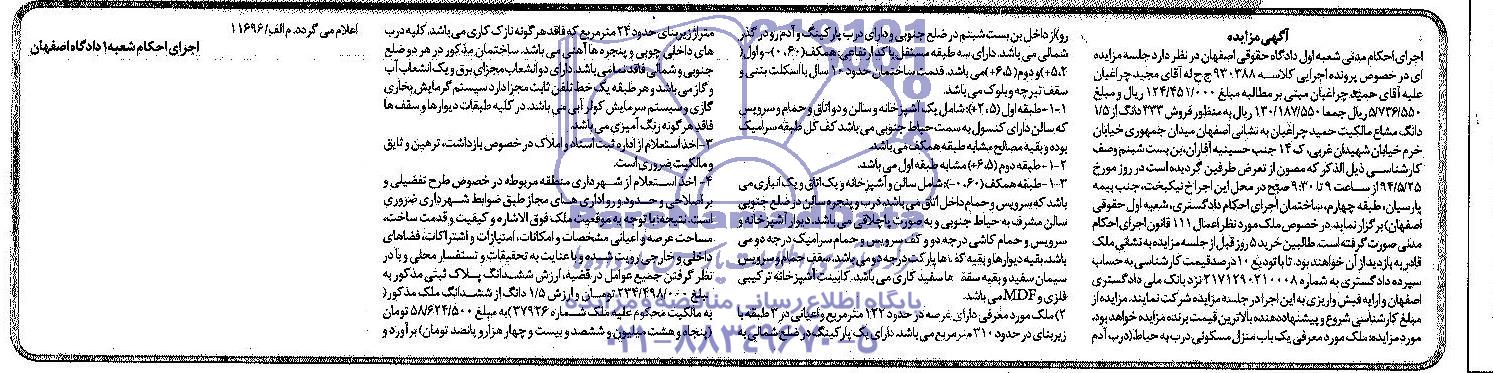 آگهی مزایده
اجرای احکام مدنی شعبه اول دادگاه حقوقی اصفهان در نظر دارد جلسه مزایده
ای در خصوص پرونده اجرایی کلاسه ۹۳۰۳۸۸ ج ح له آقای مجید چراغیان
علیه آقای حمید چراغیان مبنی بر مطالبه مبلغ ۱۲۴/۴۵۱/۰۰۰ ریال و مبلغ
۵/۷۳۶/۵۵۰ ریال جمعا ۱۳۰/۱۸۷/۵۵۰ ریال به منظور فروش ۳۳۳ دانگ از ۱/۵
دانگ مشاع مالکیت حمید چراغیان به نشانی اصفهان میدان جمهوری خیابان
خرم خیابان شهیدان غربی، ک ۱۴ جنب حسینیه آقاران، بن بست شبنم وصف
کارشناسی ذیل الذکر که مصون از تعرض طرفین گردیده است در روز مورخ
۹۴/۵/۲۵ از ساعت ۹ تا ۹:۳۰ صبح در محل این اجرا خ نیکبخت، جنب بیمه
پارسیان، طبقه چهارم، ساختمان اجرای احکام دادگستری، شعبه اول حقوقی
اصفهان) برگزار نماید. در خصوص ملک مورد نظر اعمال ۱۱۱ قانون اجرای احکام
مدنی صورت گرفته است. طالبین خرید ۵ روز قبل از جلسه مزایده به نشانی ملک
قادر به بازدید از آن خواهند بود. تا با تودیع ۱۰ درصد قیمت کارشناسی به حساب
سپرده دادگستری به شماره ۲۱۷۱۲۹۰۲۱۰۰۰۸ نزد بانک ملی دادگستری
اصفهان و ارایه فیش واریزی به این اجرا در جلسه مزایده شرکت نمایند. مزایده از
مبلغ کارشناسی شروع و پیشنهاددهنده بالاترین قیمت برنده مزایده خواهد بود.
مورد مزایده: ملک مورد معرفی یک باب منزل مسکونی درب به حیاط (درب آدم
رو) از داخل بن بست شبنم در ضلع جنوبی و دارای درب پارکینگ و آدم رو در گذر
شمالی می باشد. دارای سه طبقه مستقل با کد ارتفاعی همکف (۰،۶۰-) و اول (
۲،۵+) و دوم (۶،۵+) می باشد. قدمت ساختمان حدود ۱۰ سال با اسکلت بتنی و
سقف تیرچه و بلوک می باشد.
۱-۱- طبقه اول (۲،۵+): شامل یک آشپزخانه و سالن و دو اتاق و حمام و سرویس
که سالن دارای کنسول به سمت حیاط جنوبی می باشد کف کل طبقه سرامیک
بوده و بقیه مصالح مشابه طبقه همکف می باشد.
۱-۲- طبقه دوم (۶،۵+) مشابه طبقه اول می باشد.
۱-۳- طبقه همکف (۰،۶۰-): شامل سالن و آشپزخانه و یک اتاق و یک انباری می
باشد که سرویس و حمام داخل اتاق می باشد. درب و پنجره سالن در ضلع جنوبی
سالن مشرف به حیاط جنوبی و به صورت پاچلاقی می باشد. دیوار آشپزخانه و
سرویس و حمام کاشی درجه دو و کف سرویس و حمام سرامیک درجه دو می
باشد. بقیه دیوارها و بقیه کف ها پارکت درجه دو می باشد. سقف حمام و سرویس
سیمان سفید و بقیه سقف ها سفید کاری می باشد. کابینت آشپزخانه ترکیبی
فلزی و MDF می باشد.
۲) ملک مورد معرفی دارای عرصه در حدود ۱۲۲ مترمربع و اعیانی در ۳ طبقه با
زیربنای در حدود ۳۱۰ مترمربع می باشد. دارای یک پارکینگ در ضلع شمالی به
متراژ زیربنای حدود ۲۴ مترمربع که فاقد هر گونه نازک کاری می باشد. کلیه درب
های داخلی چوبی و پنجره ها آهنی می باشد. ساختمان مذکور در هر دو ضلع
جنوبی و شمالی فاقد نما می باشد. دارای دو انشعاب مجزای برق و یک انشعاب آب
و گاز می باشد و هر طبقه یک خط تلفن ثابت مجزا دارد سیستم گرمایش بخاری
گازی و سیستم سرمایش کولر آبی می باشد. در کلیه طبقات دیوارها و سقف ها
فاقد هر گونه رنگ آمیزی می باشد.
۳- اخذ استعلام از اداره ثبت اسناد و املاک در خصوص بازداشت، ترهین و ثایق
و مالکیت ضروری است.
۴- اخذ استعلام از شهرداری منطقه مربوطه در خصوص طرح تفضیلی و
بر اصلاحی و حدود و رواداری های مجاز طبق ضوابط شهرداری ضروری
است. نتیجه: با توجه به موقعیت ملک فوق الاشاره و کیفیت و قدمت ساخت،
مساحت عرصه و اعیانی مشخصات و امکانات، امتیازات و اشتراکات، فضاهای
داخلی و خارجی رویت شده و با عنایت به تحقیقات و تستفسار محلی و با در
نظر گرفتن جمیع عوامل در قضیه، ارزش ششدانگ پلاک ثبتی مذکور به
مبلغ ۲۳۴/۴۹۸/۰۰۰ تومان و ارزش ۱/۵ دانگ از ششدانگ ملک مذکور (
به مالکیت محکوم علیه ملک شماره ۲۷۹۲۶) به مبلغ ۵۸/۶۲۴/۵۰۰ تومان
(پنجاه و هشت میلیون و ششصد و بیست و چهار هزار و پانصد تومان) برآورد و
اعلام می گردد. م الف/۱۱۶۹۶
اجرای احکام شعبه ۱ دادگاه اصفهان
ParsNamadData
پایگاه اطلاع رسانی مناقصه و مزایده
۰۲۱-۸۸۳۴۹۶۷۰-۵